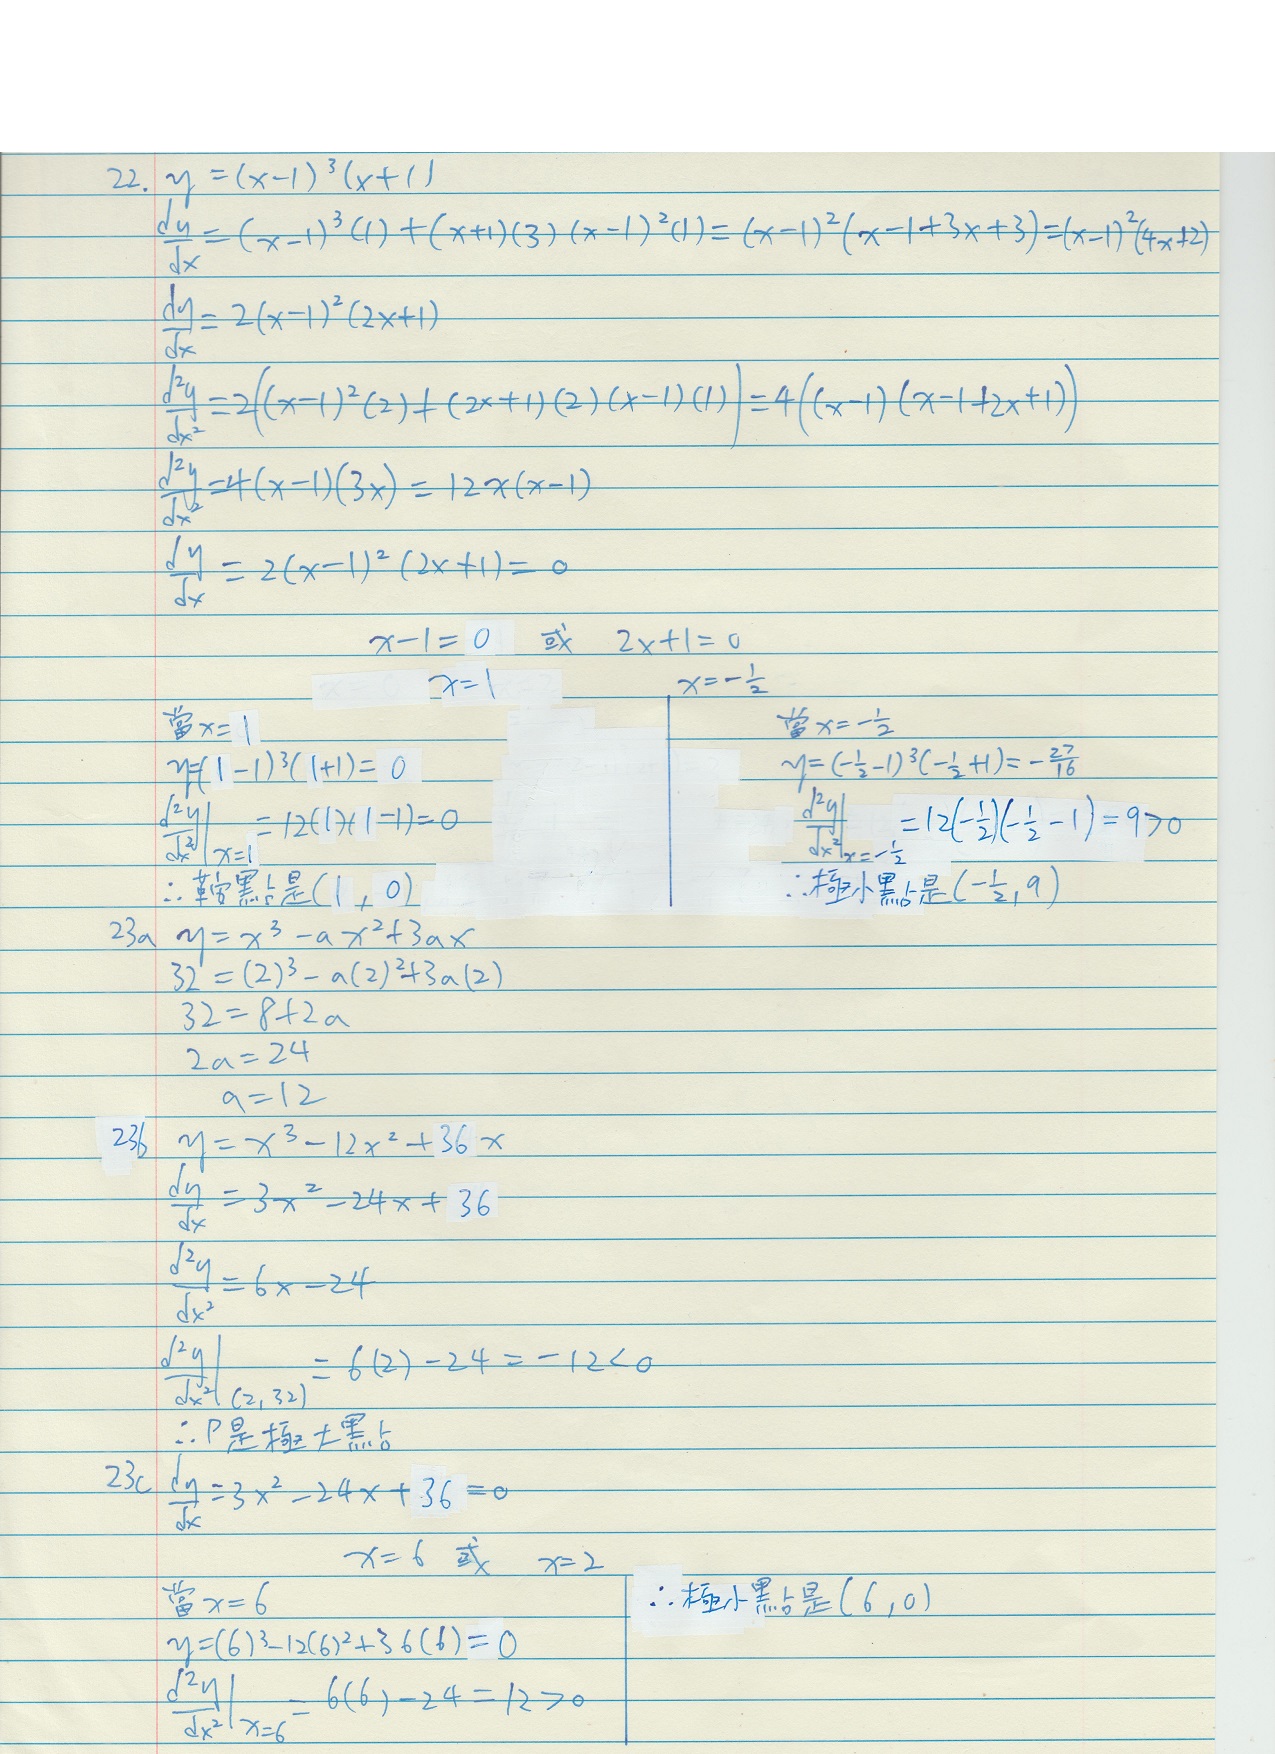 22. y = (x-1)³(x+1)
dy/dx = (x-1)³(1)+(x+1)(3)(x-1)²(1) = (x-1)²(x-1+3x+3) = (x-1)²(4x+2)
dy/dx = 2(x-1)²(2x+1)
d²y/dx² = 2((x-1)²(2)+(2x+1)(2)(x-1)(1)) = 4((x-1)(x-1+2x+1))
d²y/dx² = 4(x-1)(3x) = 12x(x-1)
dy/dx = 2(x-1)²(2x+1) = 0
x-1=0 或 2x+1=0
x=1 x=-1/2
當x=1
y=(1-1)³(1+1)=0
d²y/dx²|x=1 = 12(1)(1-1)=0
∴鞍點是(1,0)
當x=-1/2
y=(-1/2-1)³(-1/2+1)=-27/16
d²y/dx²|x=-1/2 = 12(-1/2)(-1/2-1)=9>0
∴極小點是(-1/2,9)
23a y = x³-ax²+3ax
32 = (2)³-a(2)²+3a(2)
32 = 8+2a
2a = 24
a = 12
23b y = x³-12x²+36x
dy/dx = 3x²-24x+36
d²y/dx² = 6x-24
d²y/dx²|(2,32) = 6(2)-24 = -12<0
∴P是極大點
23c dy/dx = 3x²-24x+36=0
x=6 或 x=2
當x=6
y=(6)³-12(6)²+36(6)=0
d²y/dx²|x=6 = 6(6)-24=12>0
∴極小點是(6,0)